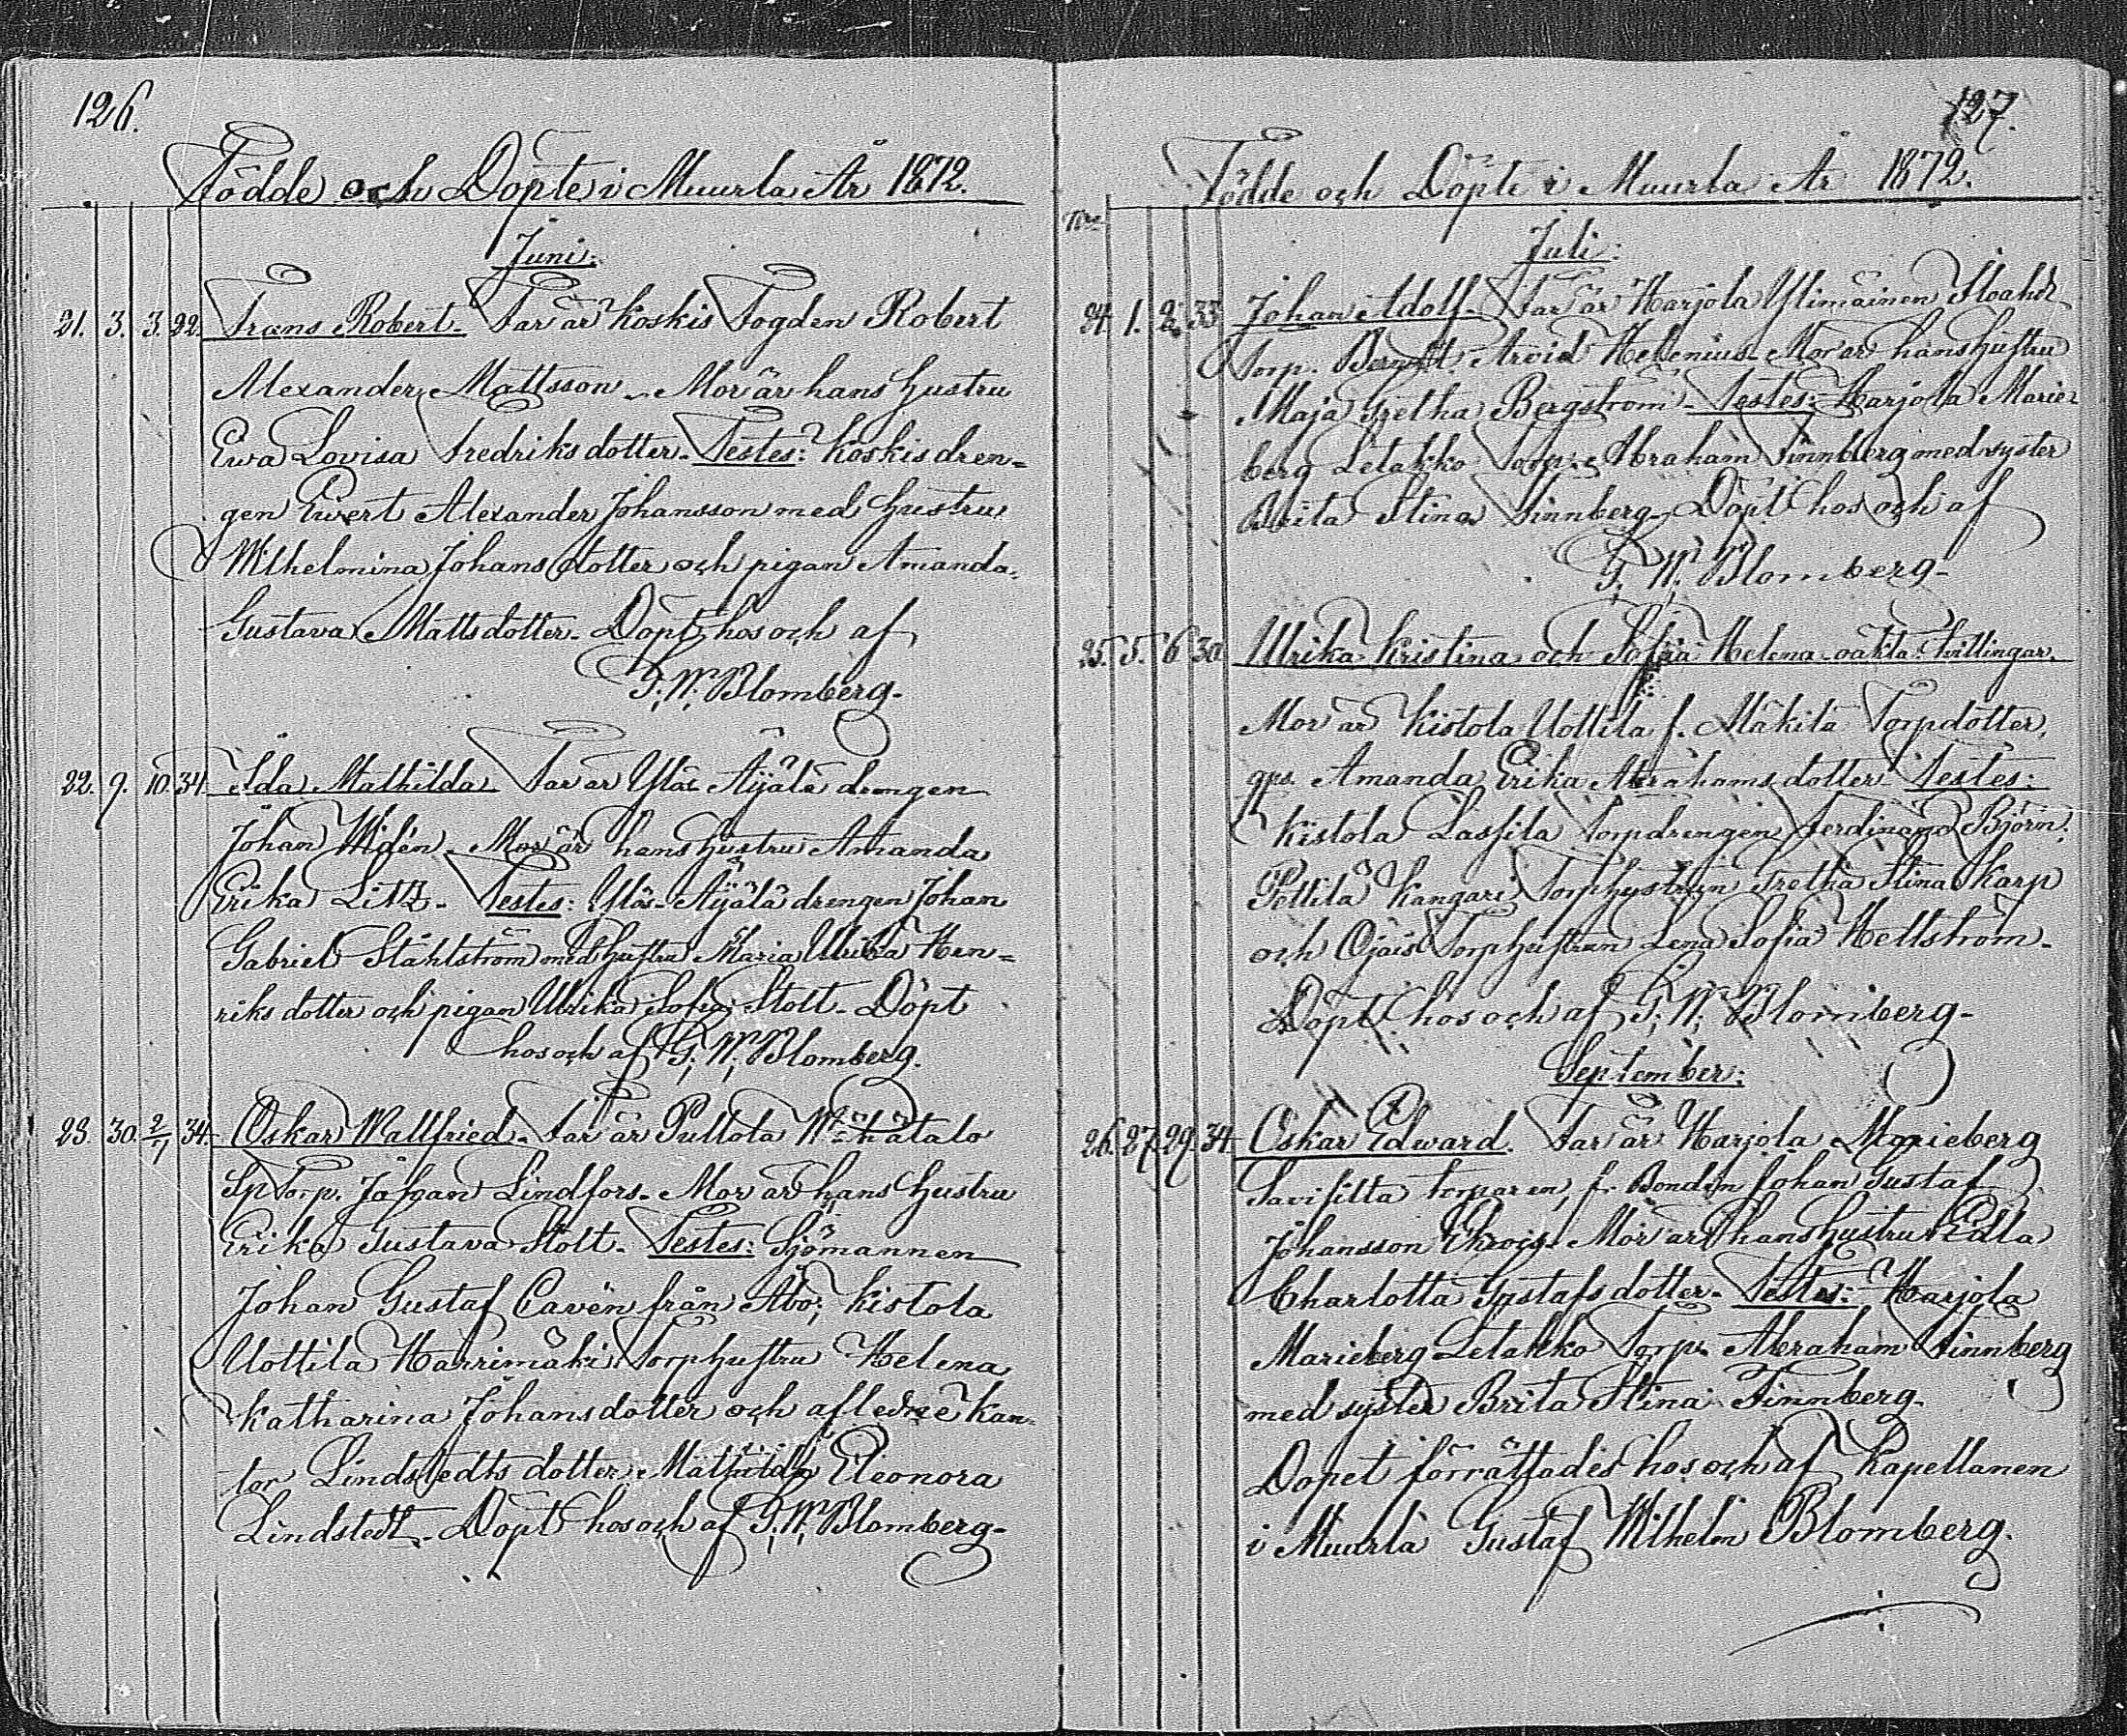 126.
Födde och Döpte i Muurla År 1872.
Juni:
21. 3. 3. 22. Frans Robert. Far är Koskis Fogden Robert
Alexander Mattsson. Mor är hans hustru
Ewa Lovisa Fredriksdotter. Testes: Koskis dren=
gen Ewert Alexander Johansson med hustru
Wilhelmina Johansdotter och pigan Amanda
Gustava Mattsdotter. Döpt hos och af
G. W. Blomberg.
22. 9. 10. 34. Ida Mathilda. Far är Ylös Äijälä drengen
Johan Widén. Mor är hans hustru Amanda
Erika Litz. Testes: Ylös-Äijälä drengen Johan
Gabriel Ståhlström med hustru Maria Ulrika Hen=
riksdotter och pigan Ulrika Sofia Stolt. Döpt
hos och af G. W. Blomberg.
23. 30. 2/7 34. Oskar Wallfried. Far är Pullola
Sp Torp. Johan Lindfors. Mor är hans hustru
Erika Gustava Stolt. Testes: Sjömannen
Johan Gustaf Cavén från Åbo; Kistola
Uottila Harrimäki Torphustru Helena
Katharina Johansdotter och afledne Kan=
tor Lindstedts dotter Mathilda Eleonora
Lindstedt. Döpt hos och af G. W. Blomberg.
127.
Födde och Döpte i Muurla År 1872.
Juli:
24. 1. 2. 33. Johan Adolf. Far är Harjola Ylimäinen
Torp. Berndt Arvid Helenius. Mor är hans hustru
Maja Gretha Bergström. Testes: Harjola Marie=
berg Letakko Torp. Abraham Finnberg med syster
Brita Stina Finnberg. Döpt hos och af
G. W. Blomberg.
25. 5. 6. 30. Ulrika Kristina och Sofia Helena oäkta tvillingar.
Mor är Kistola Uottila f. Mäkilä Torpdotter,
qps. Amanda Erika Abrahamsdotter. Testes:
Kistola Lassila Torpdrengen Ferdinand Björn.
Pettilä Kangari Torphustrun Gretha Stina Karp
och Ojais Torphustrun Lena Sofia Hellström.
Döpt hos och af G. W. Blomberg.
September:
26. 27. 29. 34. Oskar Edward. Far är Harjola Marieberg
Savisilta torparen, f. Bonden Johan Gustaf
Johansson Mor är hans hustru Edla
Charlotta Gustafsdotter. Testes: Harjola
Marieberg Letakko Torp. Abraham Finnberg
med syster Brita Stina Finnberg.
Dopet förrättades hos och af Kapellanen
i Muurla Gustaf Wilhelm Blomberg.